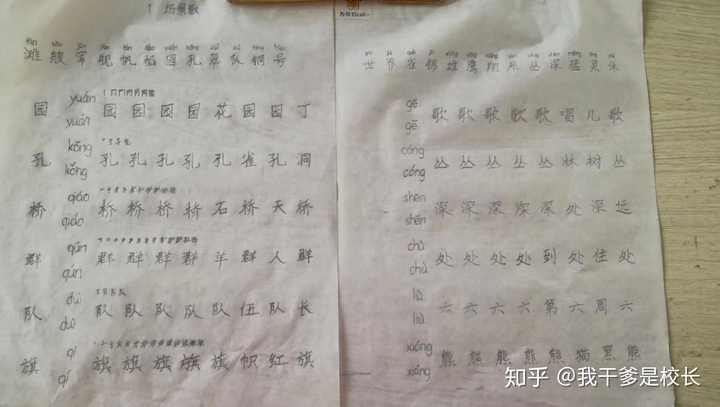 1 场景歌
滩 艘 军 舰 帆 稻 园 孔 翠 队 铜 号
园 yuán 园 园 园 园 花 园 园 丁
yuán
孔 kǒng 孔 孔 孔 孔 孔 雀 孔 洞
kǒng
桥 qiáo 桥 桥 桥 桥 石 桥 天 桥
qiáo
群 qún 群 群 群 群 羊 群 人 群
qún
队 duì 队 队 队 队 队 伍 队 长
duì
旗 qí 旗 旗 旗 旗 旗 帜 红 旗
qí
世 界 雀 锦 雄 鹰 翔 丛 深 猛 灵
gē 歌 歌 歌 歌 歌 唱 儿 歌
gē
cóng 丛 丛 丛 丛 丛 林 树 丛
cóng
shēn 深 深 深 深 深 处 深 远
shēn
chù 处 处 处 处 到 处 住 处
chù
liù 六 六 六 六 第 六 周 六
liù
xióng 熊 熊 熊 熊 熊 猫 黑 熊
xióng
知乎 @我干爹是校长